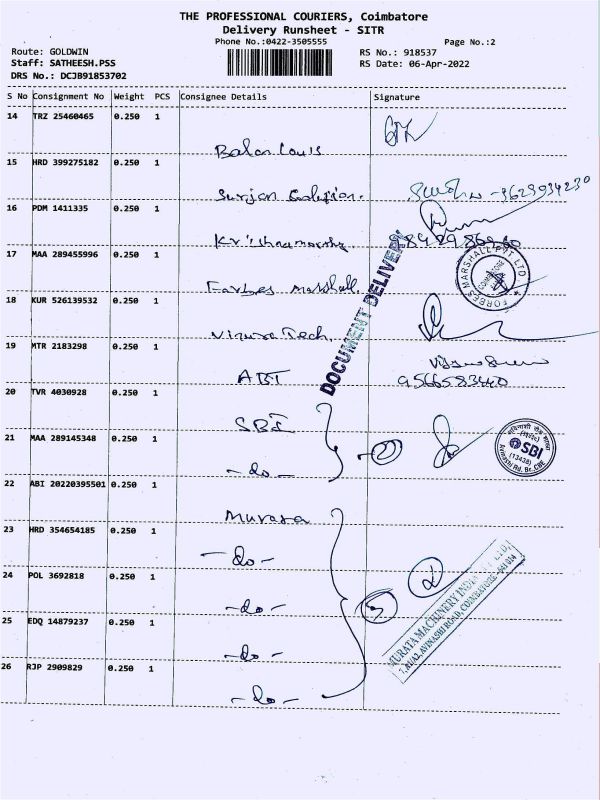 THE PROFESSIONAL COURIERS, Coimbatore
Delivery Runsheet - SITR
Phone No.:0422-3505555
Page No.:2
Route: GOLDWIN
RS No.: 918537
Staff: SATHEESH.PSS
RS Date: 06-Apr-2022
DRS No.: DCJB91853702
S No Consignment No Weight PCS Consignee Details Signature
14 TRZ 25460465 0.250 1
Balan Louis
15 HRD 399275182 0.250 1
Surjan
16 PDM 1411335 0.250 1
Krishnamoorthy
17 MAA 289455996 0.250 1
Forbes Marshall
FORBES MARSHALL PVT LTD
COIMBATORE
DOCUMENT DELIVERY
18 KUR 526139532 0.250 1
Tech
19 MTR 2183298 0.250 1
ABT
9566583440
20 TVR 4030928 0.250 1
SBI
21 MAA 289145348 0.250 1
-do-
2
SBI
(13438)
Avinashi Rd. Br. CBE
22 ABI 20220395501 0.250 1
Murata
23 HRD 354654185 0.250 1
-do-
24 POL 3692818 0.250 1
-do-
5
MURATA MACHINERY INDIA PVT LTD,
AVINASHI ROAD, COIMBATORE - 641 014
25 EDQ 14879237 0.250 1
-do-
26 RJP 2909829 0.250 1
-do-